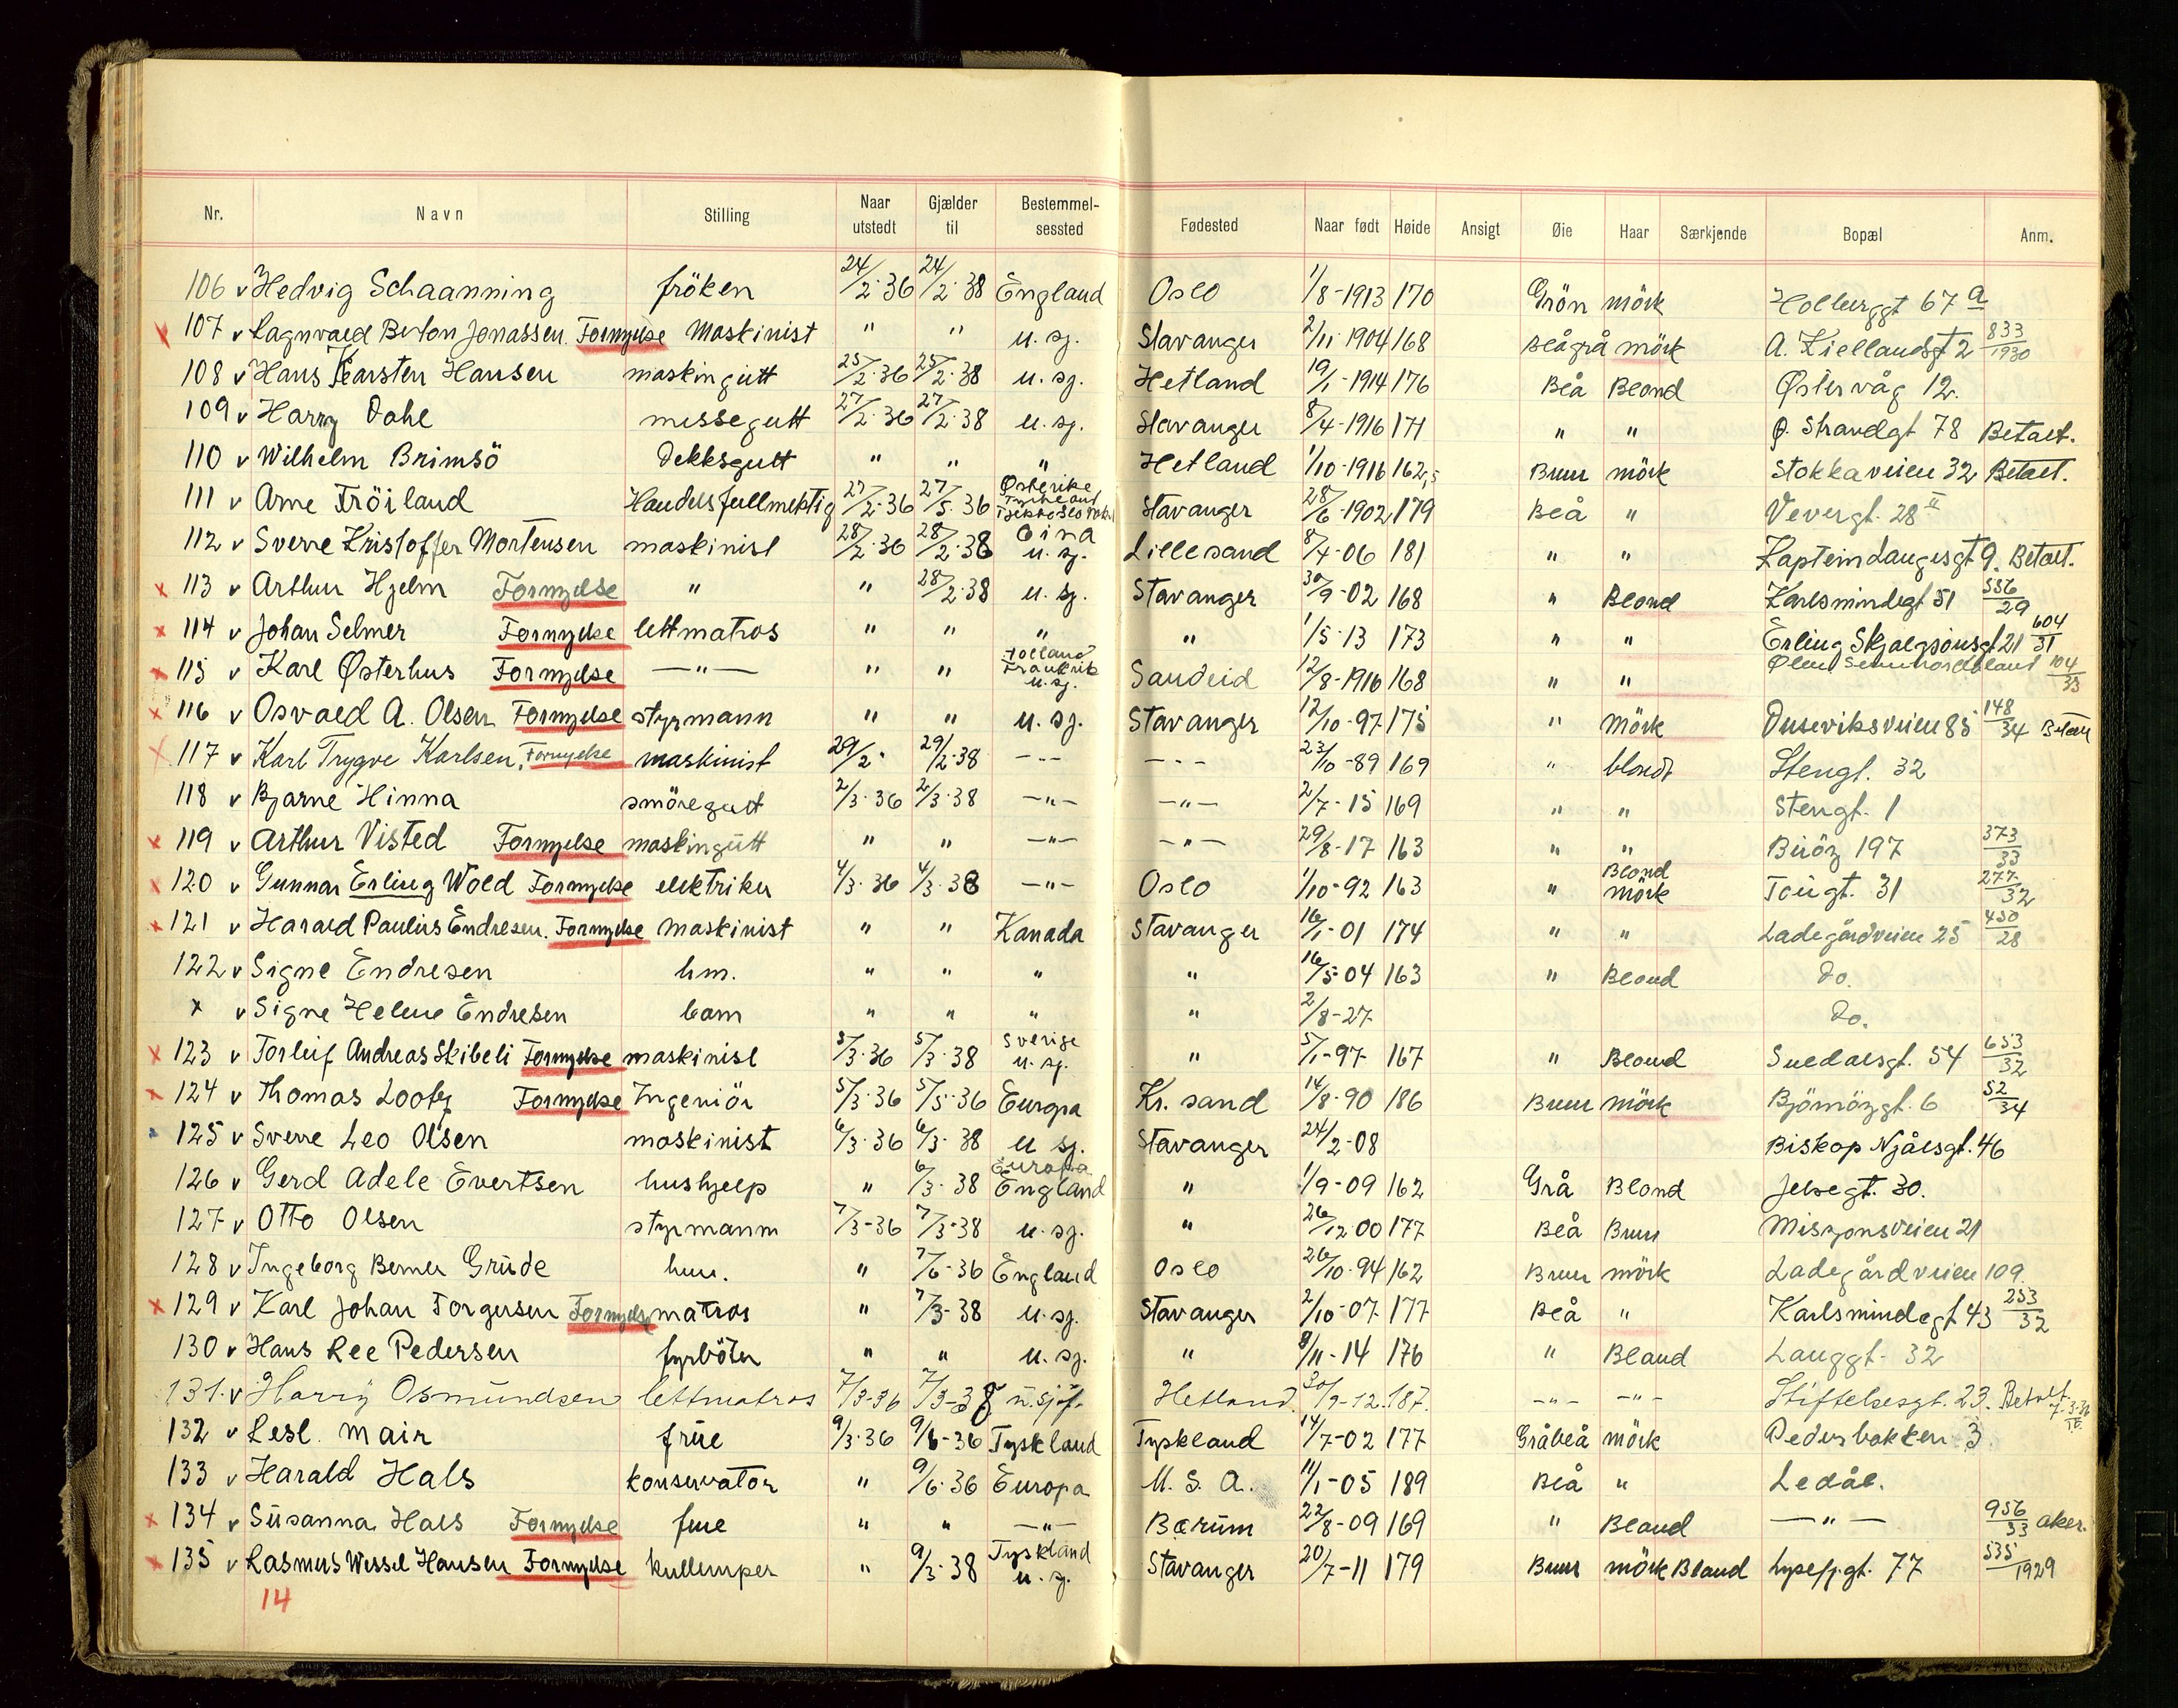 Nr. Navn Stilling Naar utstedt Gjælder til Bestemmel-sessted Fødested Naar født Høide Ansigt Øie Haar Særkjende Bopæl Anm.
106 v Hedvig Schaanning fröken 24/2-36 24/2-38 England Oslo 1/8-1913 170 Grön mörk Holberggt 67 a
x 107 v Ragnvald Berton Jonassen. Fornyelse Maskinist " " u. sj. Stavanger 2/11 1904 168 Blågrå mörk A. Kiellandsgt 2 833/1930
108 v Hans Karsten Hansen maskingutt 25/2-36 25/2-38 u. sj. Hetland 19/1-1914 176 Blå Blond Østervåg 12.
109 v Harry Dahl messegutt 27/2-36 27/2-38 u. sj. Stavanger 8/4-1916 171 " " Ø. Strandgt 78 Betalt.
110 v Wilhelm Brimsö Dekksgutt " " " Hetland 1/10-1916 162,5 Brun mörk Stokkaveien 32 Betalt.
111 v Arne Fröiland Handelsfullmektig 27/2-36 27/5-36 Østerike Tyskland Stavanger 28/6-1902 179 Blå " Vevergt. 28 II
112 v Sverre Kristoffer Mortensen maskinist 28/2-36 28/2-38 Cina u. sj. Lillesand 8/4-06 181 " " Kaptein Langesgt 9. Betalt.
x 113 v Arthur Hjelm Fornyelse " " 28/2-38 u. sj. Stavanger 30/9-02 168 " Blond Karlsmindegt 51 556/29
x 114 v Johan Selmer Fornyelse lettmatros " " " " 1/5-13 173 " " Erling Skjalgsönsgt 21 604/31
x 115 v Karl Østerhus Fornyelse —"— " " Holland Frankrik u. sj. Sandeid 12/8-1916 168 " " Ølen Sunnhordland 104/33
x 116 v Osvald A. Olsen Fornyelse styrmann " " u. sj. Stavanger 12/10-97 175 " Mörk Duseviksveien 85 148/34 Betalt
x 117 v Karl Trygve Karlsen, Fornyelse maskinist 29/2- 29/2-38 -"- -"- 23/10-89 169 " blondt Stengt. 32
118 v Bjarne Hinna smöregutt 2/3-36 2/3-38 —"— —"— 2/7-15 169 " " Stengt. 1
x 119 v Arthur Visted Fornyelse maskingutt " " —"— —"— 29/8-17 163 " " Buöy 197 373/33
x 120 v Gunnar Erling Wold Fornyelse elektriker 4/3-36 4/3-38 —"— Oslo 1/10-92 163 " Blond mörk Tougt. 31 277/32
x 121 v Harald Paulus Endresen. Fornyelse Maskinist " " Kanada Stavanger 16/1-01 174 " " Ladegårdveien 25 450/28
122 v Signe Endresen hm. " " " " 16/5-04 163 " Blond do.
x v Signe Helene Endresen barn " " " " 2/8-27 do.
x 123 v Torleif Andreas Skibeli Fornyelse maskinist 5/3-36 5/3-38 Sverige u. sj. " 5/1-97 167 " Blond Suldalsgt. 54 653/32
x 124 v Thomas Looty Fornyelse Ingeniör 5/3-36 5/5-36 Europa Kr. sand 14/8-90 186 Brun mörk Björnöygt. 6 52/34
125 v Sverre Leo Olsen maskinist 6/3-36 6/3-38 u sj. Stavanger 24/2-08 Biskop Njålsgt. 46
126 v Gerd Adele Evertsen hushjelp " 6/3-38 Europa England " 1/9-09 162 Grå Blond Jelsegt. 30.
127 v Otto Olsen styrmann 7/3-36 7/3-38 u. sj. " 26/12 00 177 Blå Brun Misjonsveien 21
128 v Ingeborg Berner Grude hm. " 7/6-36 England Oslo 26/10-94 162 Brun mörk Ladegårdveien 109.
x 129 v Karl Johan Torgersen Fornyelse matros " 7/3-38 u. sj. Stavanger 2/10-07 177 Blå " Karlsmindegt 43 253/32
130 v Hans Ree Pedersen fyrböter " " u. sj. " 8/11-14 176 " Blond Langgt. 32
131. v Harry Osmundsen lettmatros 7/3-36 7/3-38 u. sjöf. Hetland. 30/9-12. 187. -"- -"- Stiftelsesgt. 23. Betalt. 7-3-36
132 v Lesl. Mair frue 9/3-36 9/6-36 Tyskland Tyskland 14/7-02 177 Gråblå mörk Pedersbakken 3
133 v Harald Hals konservator " 9/6-36 Europa U. S. A. 11/1-05 189 Blå " Ledål.
x 134 v Susanna Hals Fornyelse frue " " —"— Bærum 22/8-09 169 " Blond —"— 956/33 Aker.
x 135 v Rasmus Wessel Hansen Fornyelse kullemper " 9/3-38 Tyskland u. sj. Stavanger 20/7-11 179 Brun mörk Blond Lysefj.gt. 77 535/1929
14